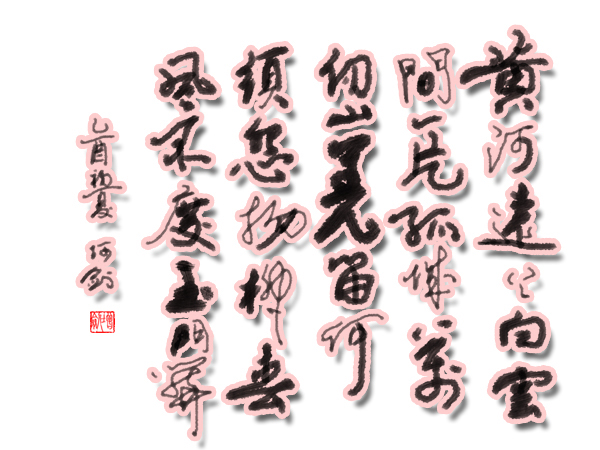 黄河遠上白雲
間一片孤城萬
仞山羌笛何
須怨楊柳春
風不度玉門關
乙酉初夏